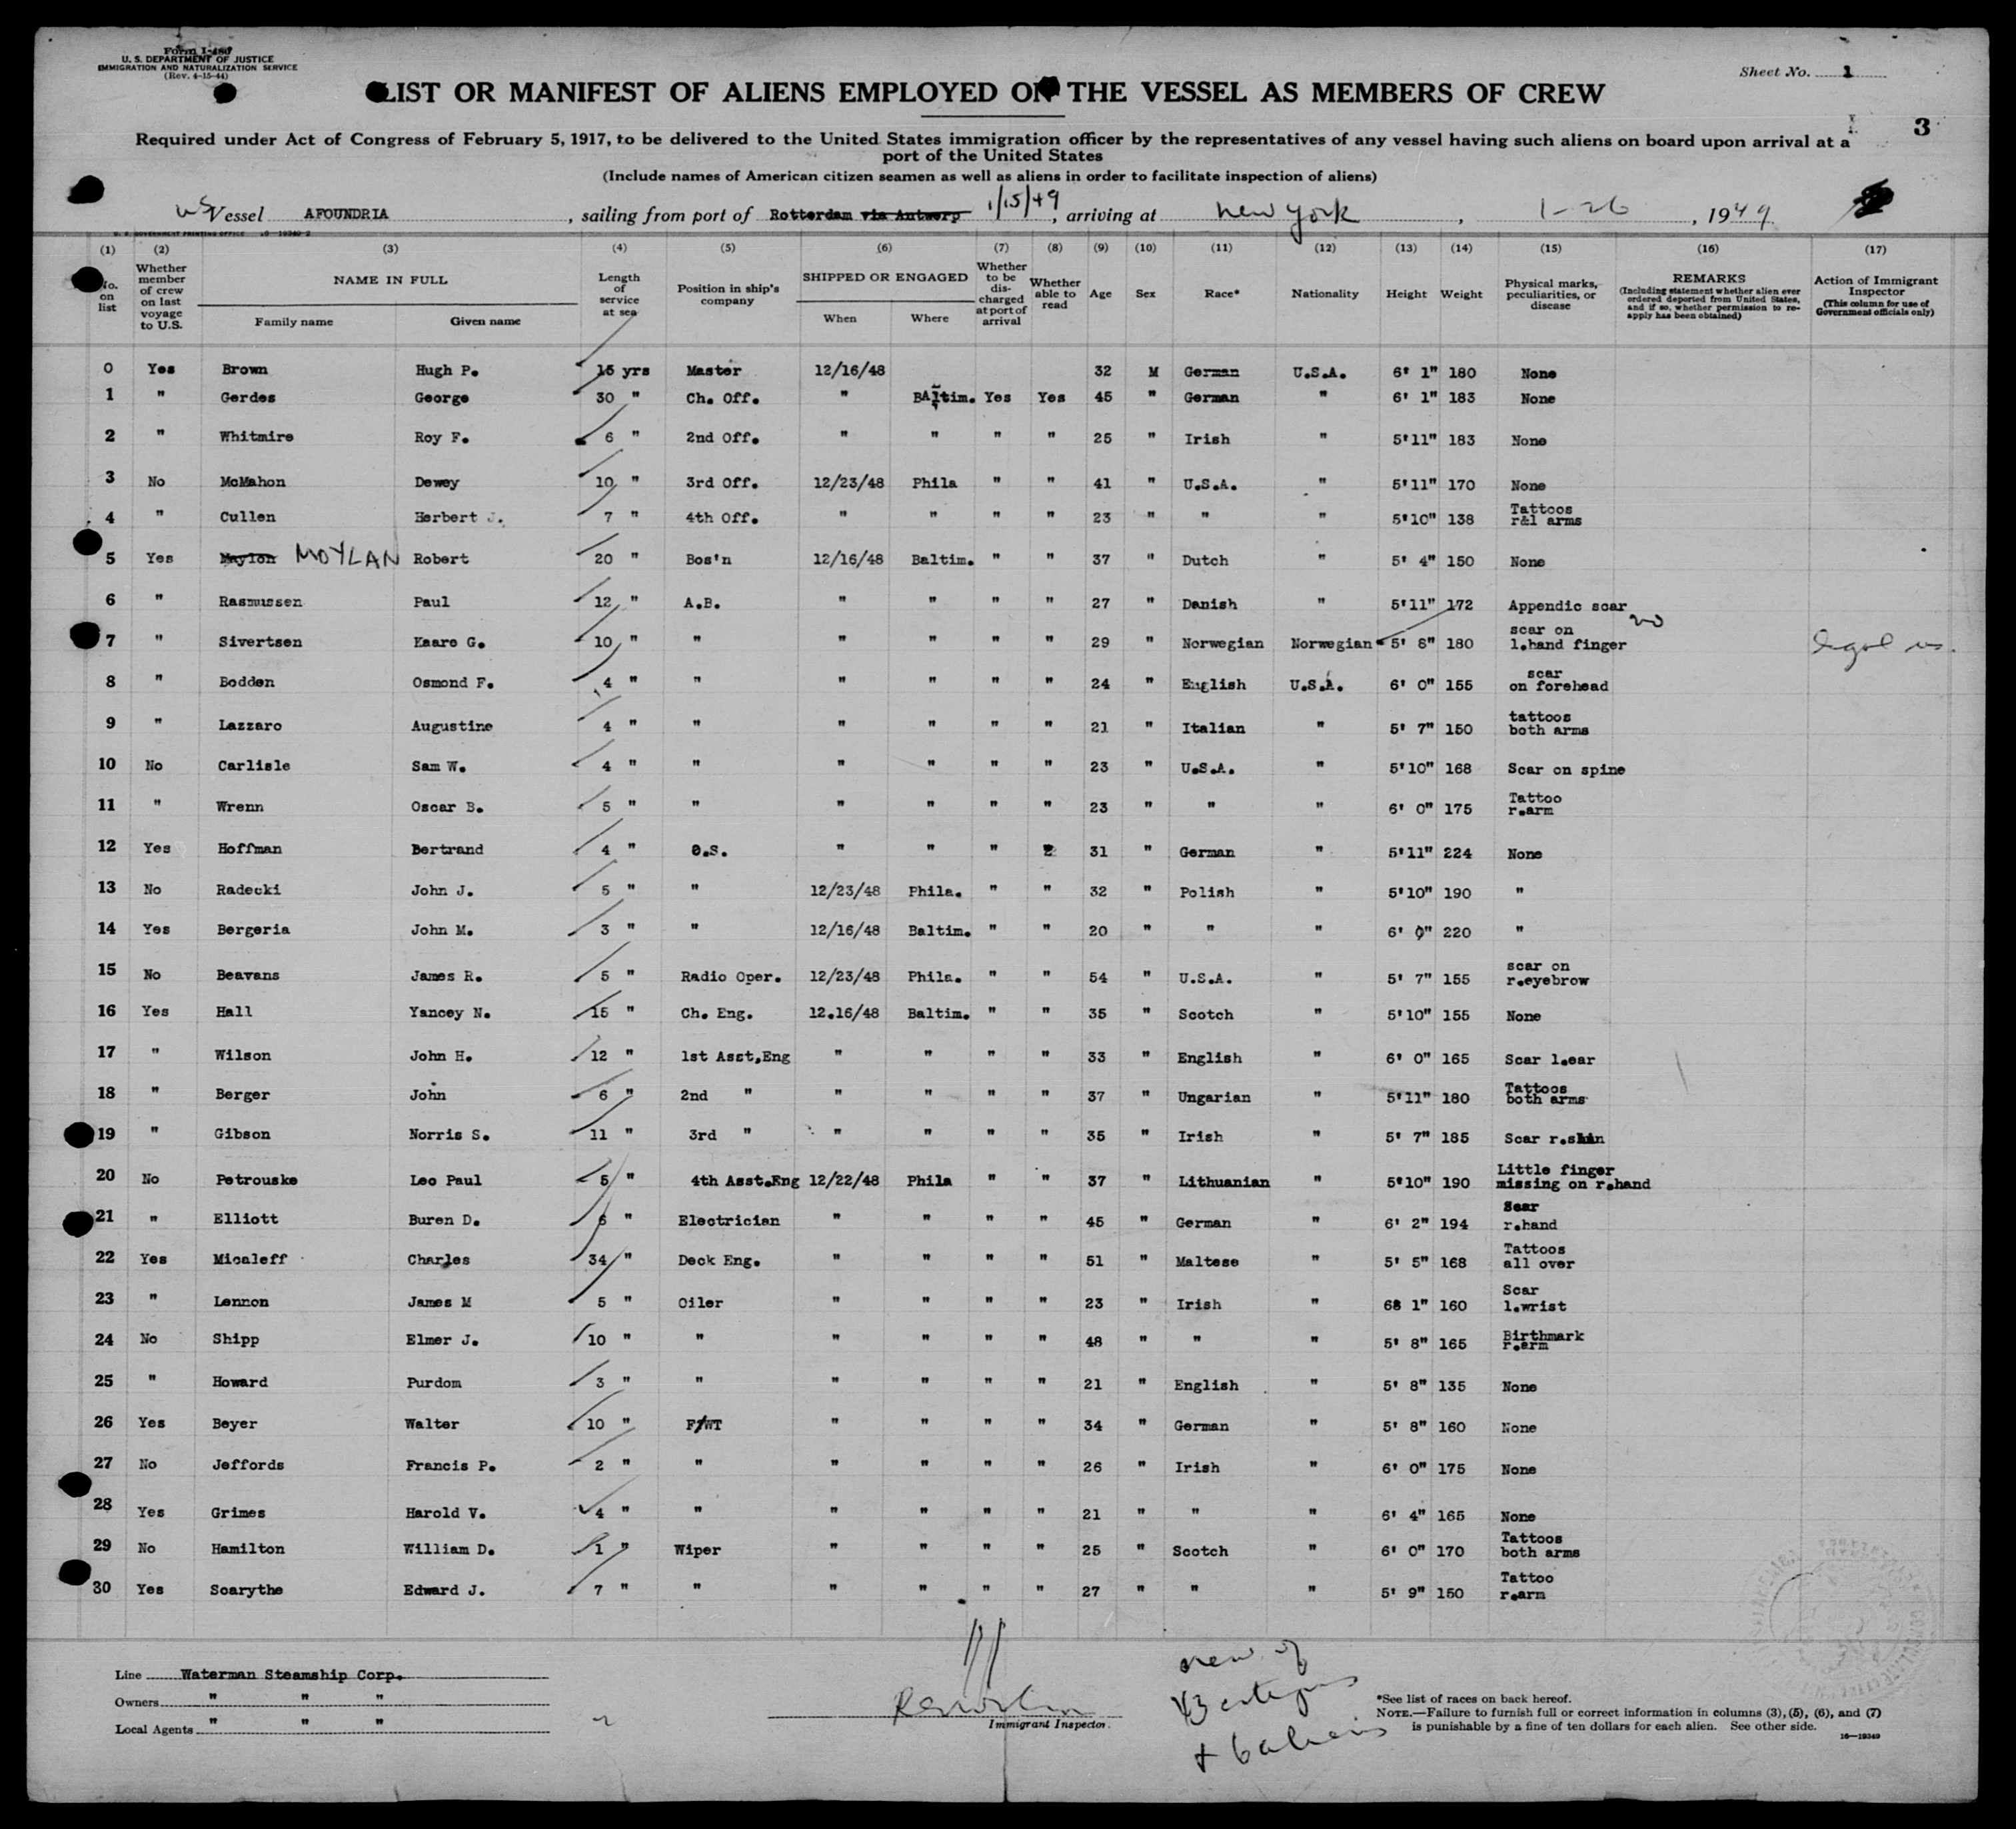 Form I-480
U. S. DEPARTMENT OF JUSTICE
IMMIGRATION AND NATURALIZATION SERVICE
(Rev. 4-15-44)
Sheet No. 1
LIST OR MANIFEST OF ALIENS EMPLOYED ON THE VESSEL AS MEMBERS OF CREW
3
Required under Act of Congress of February 5, 1917, to be delivered to the United States immigration officer by the representatives of any vessel having such aliens on board upon arrival at a
port of the United States
(Include names of American citizen seamen as well as aliens in order to facilitate inspection of aliens)
US Vessel AFOUNDRIA, sailing from port of Rotterdam via Antwerp 1/15/49, arriving at new york, 1-26, 1949
(1) (2) (3) (4) (5) (6) (7) (8) (9) (10) (11) (12) (13) (14) (15) (16) (17)
No. on list
Whether member of crew on last voyage to U.S.
NAME IN FULL
Family name Given name
Length of service at sea
Position in ship's company
SHIPPED OR ENGAGED
When Where
Whether to be discharged at port of arrival
Whether able to read
Age
Sex
Race*
Nationality
Height
Weight
Physical marks, peculiarities, or disease
REMARKS
(Including statement whether alien ever ordered deported from United States, and if so, whether permission to re-apply has been obtained)
Action of Immigrant Inspector
(This column for use of Government officials only)
0 Yes Brown Hugh P. 15 yrs Master 12/16/48 32 M German U.S.A. 6' 1" 180 None
1 " Gerdes George 30 " Ch. Off. " BAltim. Yes Yes 45 " German " 6' 1" 183 None
2 " Whitmire Roy F. 6 " 2nd Off. " " " " 25 " Irish " 5'11" 183 None
3 No McMahon Dewey 10 " 3rd Off. 12/23/48 Phila " " 41 " U.S.A. " 5'11" 170 None
4 " Cullen Herbert J. 7 " 4th Off. " " " " 23 " " " 5'10" 138 Tattoos r&l arms
5 Yes Maylon MOYLAN Robert 20 " Bos'n 12/16/48 Baltim. " " 37 " Dutch " 5' 4" 150 None
6 " Rasmussen Paul 12 " A.B. " " " " 27 " Danish " 5'11" 172 Appendic scar
7 " Sivertsen Kaare G. 10 " " " " " " 29 " Norwegian Norwegian 5' 8" 180 scar on l.hand finger
8 " Bodden Osmond F. 4 " " " " " " 24 " English U.S.A. 6' 0" 155 scar on forehead
9 " Lazzaro Augustine 4 " " " " " " 21 " Italian " 5' 7" 150 tattoos both arms
10 No Carlisle Sam W. 4 " " " " " " 23 " U.S.A. " 5'10" 168 Scar on spine
11 " Wrenn Oscar B. 5 " " " " " " 23 " " " 6' 0" 175 Tattoo r.arm
12 Yes Hoffman Bertrand 4 " O.S. " " " " 31 " German " 5'11" 224 None
13 No Radecki John J. 5 " " 12/23/48 Phila. " " 32 " Polish " 5'10" 190 "
14 Yes Bergeria John M. 3 " " 12/16/48 Baltim. " " 20 " " " 6' 0" 220 "
15 No Beavans James R. 5 " Radio Oper. 12/23/48 Phila. " " 54 " U.S.A. " 5' 7" 155 scar on r.eyebrow
16 Yes Hall Yancey N. 15 " Ch. Eng. 12.16/48 Baltim. " " 35 " Scotch " 5'10" 155 None
17 " Wilson John H. 12 " 1st Asst,Eng " " " " 33 " English " 6' 0" 165 Scar l.ear
18 " Berger John 6 " 2nd " " " " " 37 " Ungarian " 5'11" 180 Tattoos both arms
19 " Gibson Norris S. 11 " 3rd " " " " " 35 " Irish " 5' 7" 185 Scar r.shin
20 No Petrouske Leo Paul 5 " 4th Asst.Eng 12/22/48 Phila " " 37 " Lithuanian " 5'10" 190 Little finger missing on r.hand
21 " Elliott Buren D. 6 " Electrician " " " " 45 " German " 6' 2" 194 Scar r.hand
22 Yes Micaleff Charles 34 " Deck Eng. " " " " 51 " Maltese " 5' 5" 168 Tattoos all over
23 " Lennon James M 5 " Oiler " " " " 23 " Irish " 68 1" 160 Scar l.wrist
24 No Shipp Elmer J. 10 " " " " " " 48 " " " 5' 8" 165 Birthmark r.arm
25 " Howard Purdom 3 " " " " " " 21 " English " 5' 8" 135 None
26 Yes Beyer Walter 10 " F/WT " " " " 34 " German " 5' 8" 160 None
27 No Jeffords Francis P. 2 " " " " " " 26 " Irish " 6' 0" 175 None
28 Yes Grimes Harold V. 4 " " " " " " 21 " " " 6' 4" 165 None
29 No Hamilton William D. 1 " Wiper " " " " 25 " Scotch " 6' 0" 170 Tattoos both arms
30 Yes Scarythe Edward J. 7 " " " " " " 27 " " " 5' 9" 150 Tattoo r.arm
Line Waterman Steamship Corp.
Owners " " "
Local Agents " " "
Immigrant Inspector.
*See list of races on back hereof.
NOTE.—Failure to furnish full or correct information in columns (3), (5), (6), and (7)
is punishable by a fine of ten dollars for each alien. See other side.
16—19349